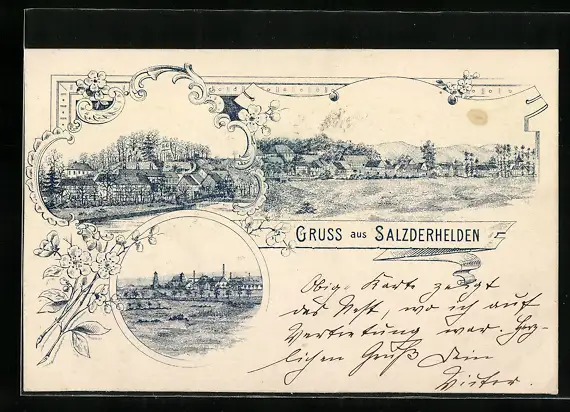 GRUSS aus SALZDERHELDEN
Obige Karte zeigt
das Nest, wo ich auf
Vertretung war. Herz-
lichen Gruß Dein
Victor.